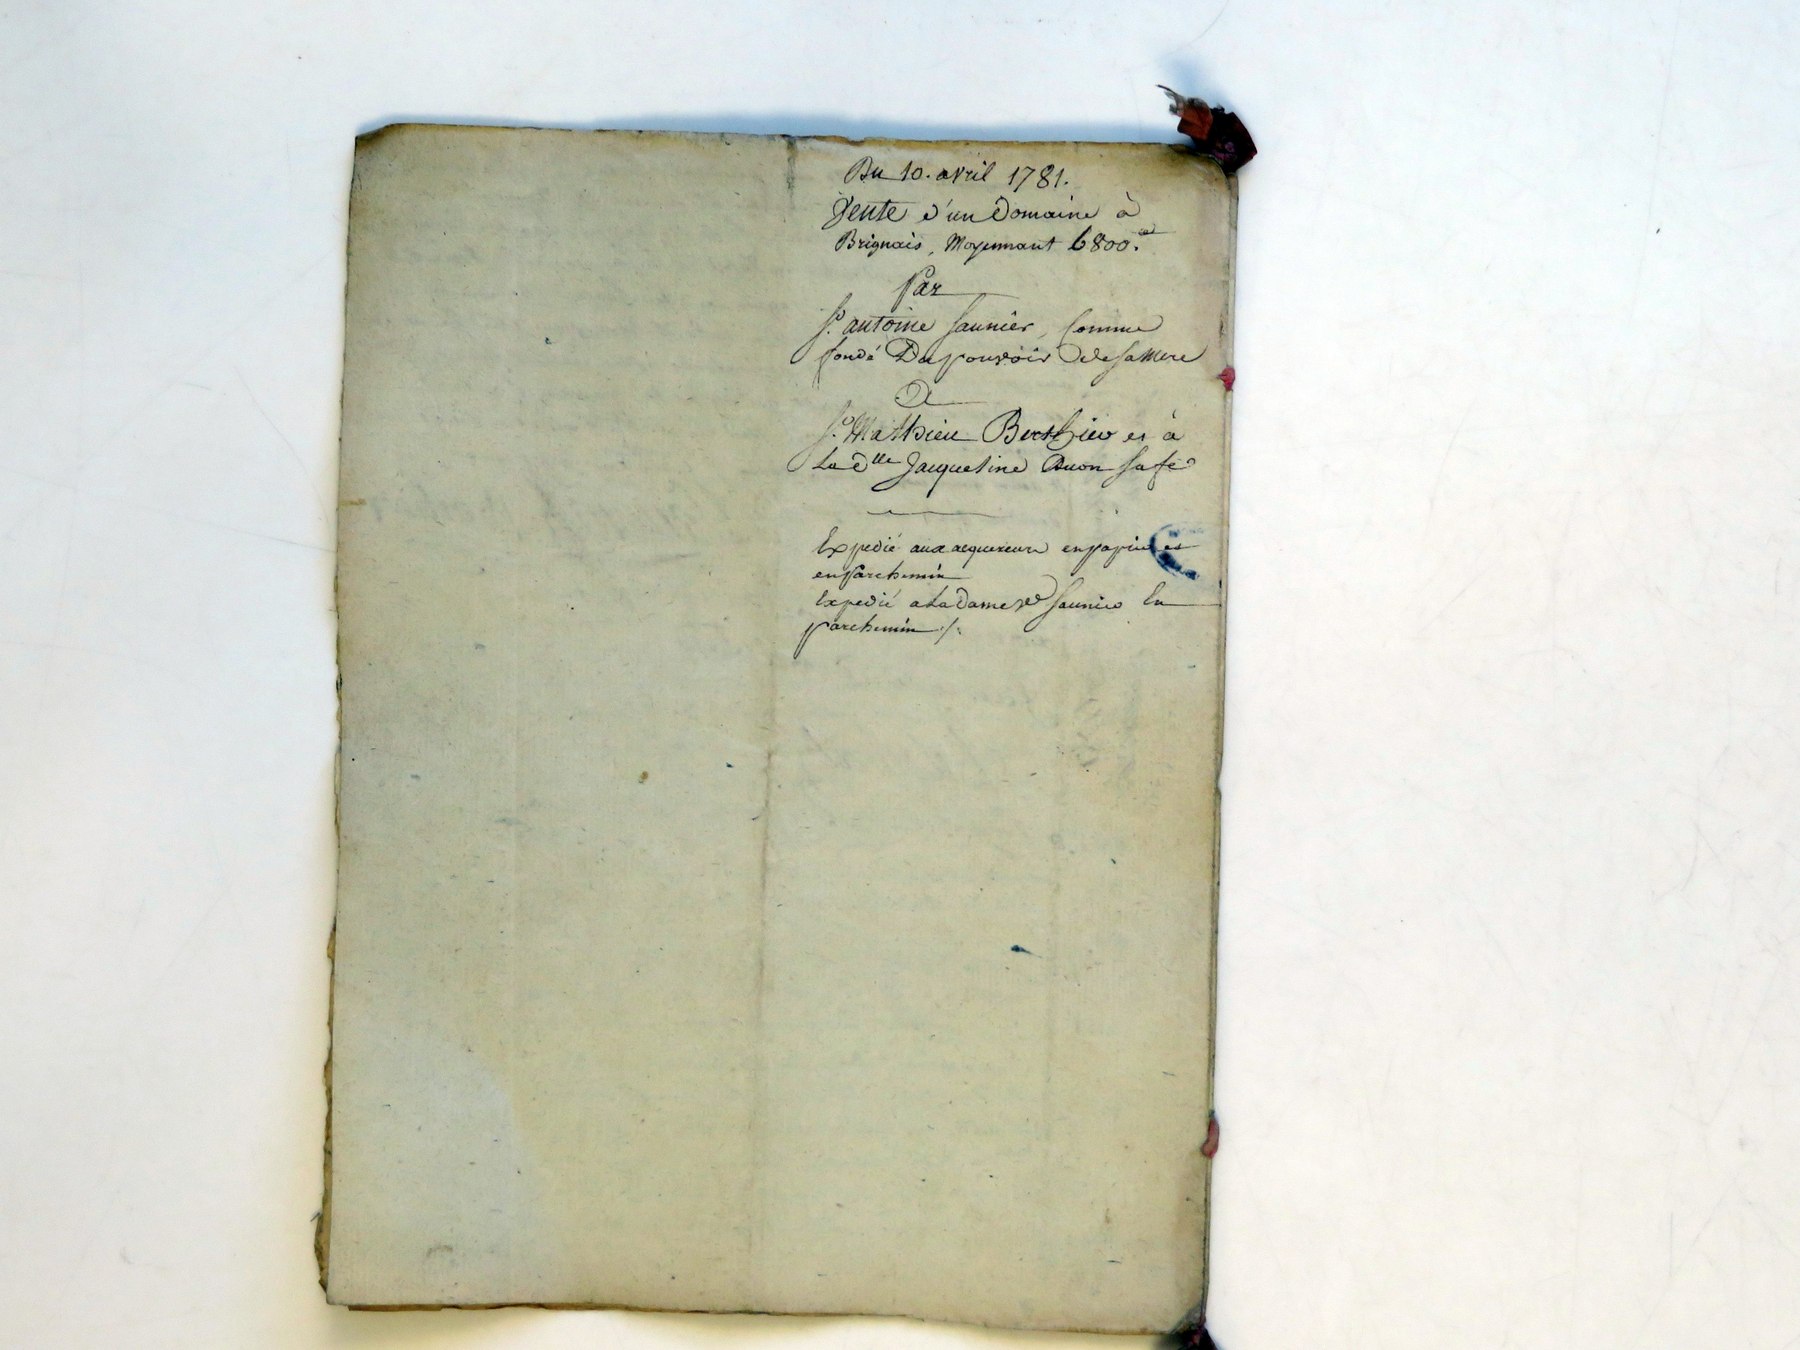 Du 10. avril 1781.
Vente d'un Domaine à
Brignais, Moyennant 6800.
Par
Sr. antoine Saunier, Comme
fondé Du pouvoir de sa Mere
A
Sr. Mathieu Berthier et à
La dlle Jacqueline Buon sa fe
Expedié aux acquereurs en papier et
en Parchemin
Expedié a La Dame ve Saunier En
parchemin ./.